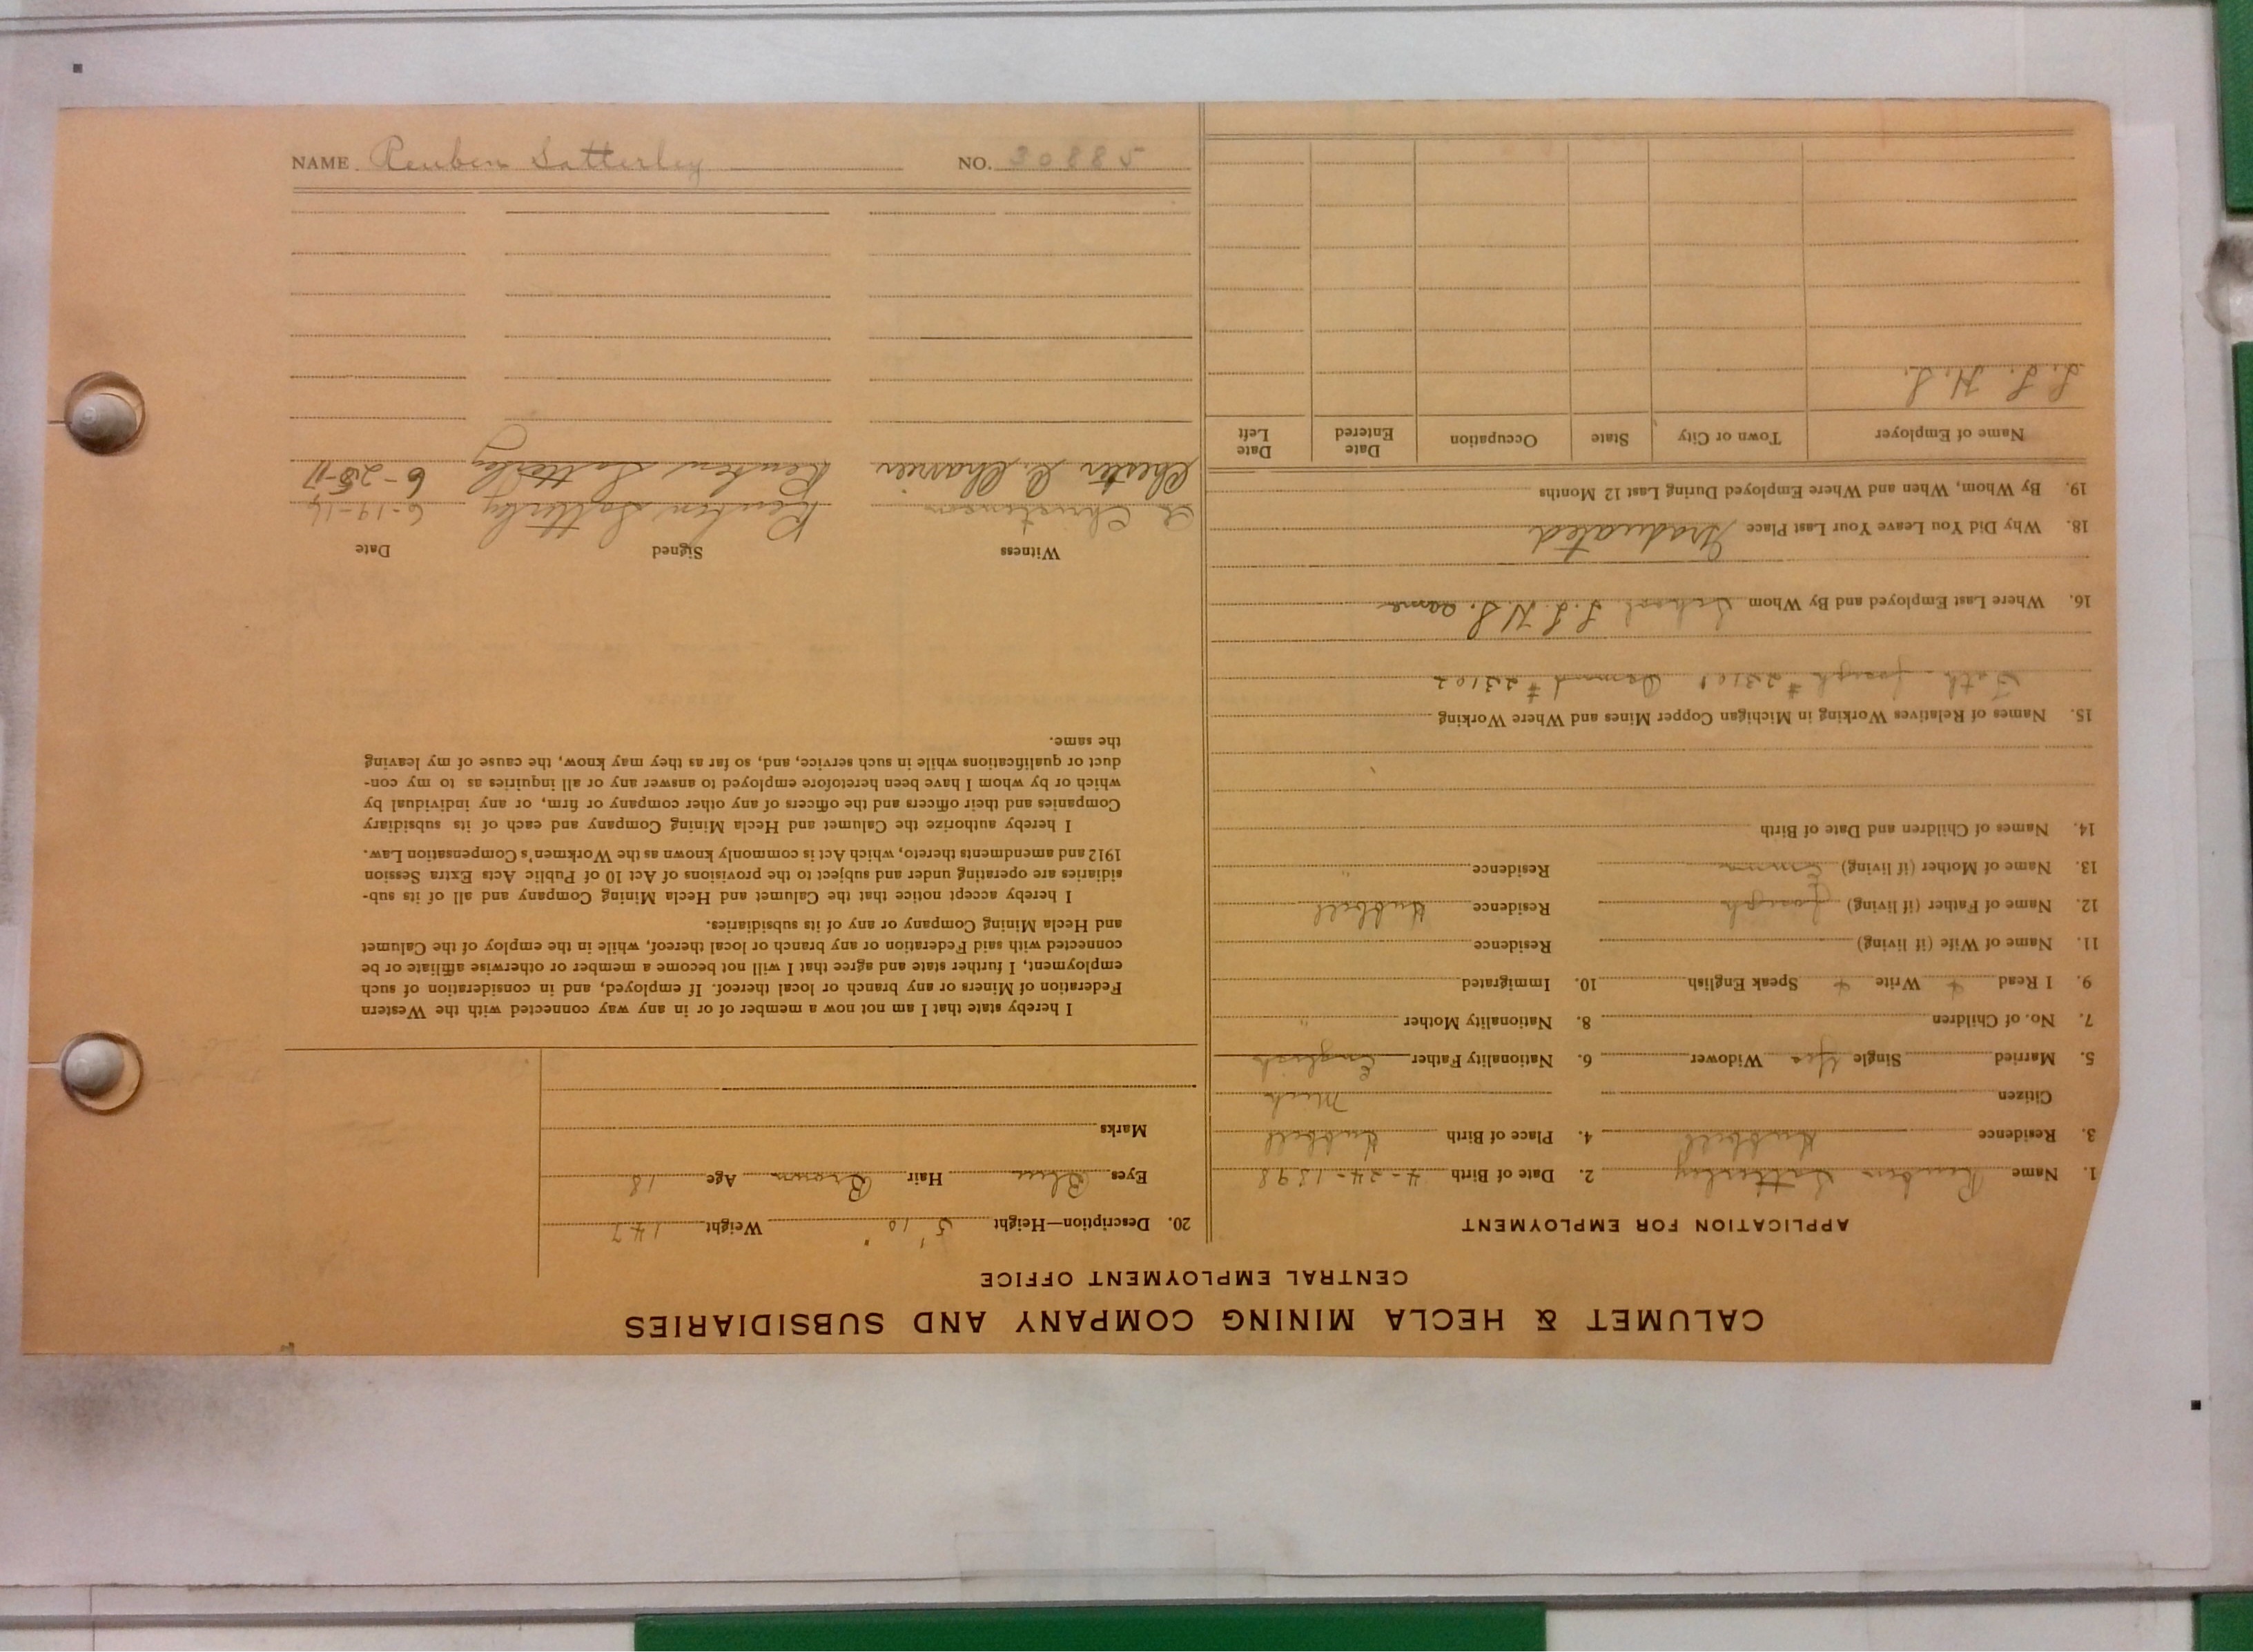 NAME Reuben Satterley NO. 30885
CALUMET & HECLA MINING COMPANY AND SUBSIDIARIES
CENTRAL EMPLOYMENT OFFICE
APPLICATION FOR EMPLOYMENT
1. Name Reuben Satterley 2. Date of Birth 4-24-1898
3. Residence Hubbell 4. Place of Birth Hubbell
Citizen Mich
5. Married Single Yes Widower 6. Nationality Father English
7. No. of Children 8. Nationality Mother "
9. I Read Write Speak English 10. Immigrated
11. Name of Wife (if living) Residence
12. Name of Father (if living) Joseph Residence Hubbell
13. Name of Mother (if living) Emma Residence "
14. Names of Children and Date of Birth
15. Names of Relatives Working in Michigan Copper Mines and Where Working
Fath - Joseph #23101 #23102
16. Where Last Employed and By Whom School L.L.H.S. Game
18. Why Did You Leave Your Last Place Graduated
19. By Whom, When and Where Employed During Last 12 Months
Name of Employer Town or City State Occupation Date Entered Date Left
L.L.H.S.
20. Description—Height 5' 10" Weight 147
Eyes Blue Hair Brown Age 18
Marks
I hereby state that I am not now a member of or in any way connected with the Western
Federation of Miners or any branch or local thereof. If employed, and in consideration of such
employment, I further state and agree that I will not become a member or otherwise affiliate or be
connected with said Federation or any branch or local thereof, while in the employ of the Calumet
and Hecla Mining Company or any of its subsidiaries.
I hereby accept notice that the Calumet and Hecla Mining Company and all of its sub-
sidiaries are operating under and subject to the provisions of Act 10 of Public Acts Extra Session
1912 and amendments thereto, which Act is commonly known as the Workmen's Compensation Law.
I hereby authorize the Calumet and Hecla Mining Company and each of its subsidiary
Companies and their officers and the officers of any other company or firm, or any individual by
which or by whom I have been heretofore employed to answer any or all inquiries as to my con-
duct or qualifications while in such service, and, so far as they may know, the cause of my leaving
the same.
Witness Signed Date
Reuben Satterley 6-19-16
Chester Reuben Satterley 6-25-17